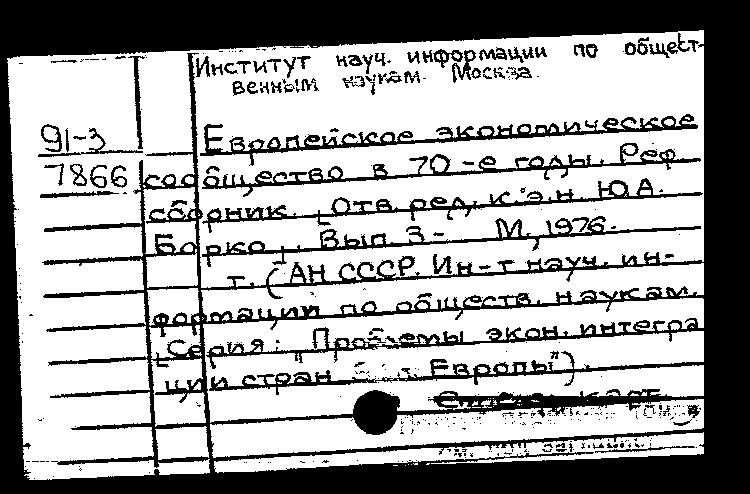 Институт науч. информации по общест-
венным наукам. Москва.
91-3
Европейское экономическое
7866 сообщество в 70-е годы. Реф.
сборник. [Отв. ред. к.э.н. Ю.А.
Борко]. Вып. 3- М., 1976.
т. (АН СССР. Ин-т науч. ин-
формации по обществ. наукам.
[Серия: "Проблемы экон. интегра
ции стран Зап. Европы").
см. под заглавием